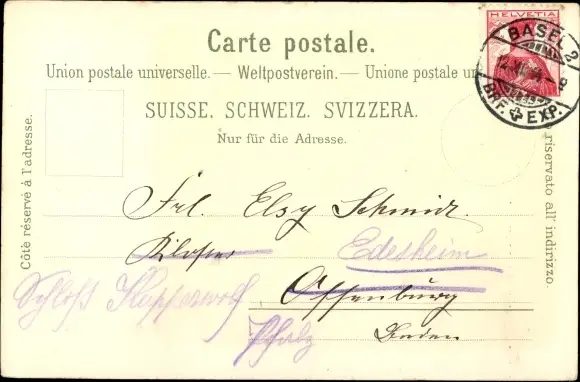 HELVETIA
BASEL 2
BRF. EXP.
Carte postale.
Union postale universelle. — Weltpostverein. — Unione postale un
SUISSE. SCHWEIZ. SVIZZERA.
Nur für die Adresse.
Côté réservé à l'adresse.
riservato all' indirizzo.
Frl. Elsy Schmidt.
Kloster
Edesheim
Schloß Kupperwolf
Offenburg
Pfalz
Baden